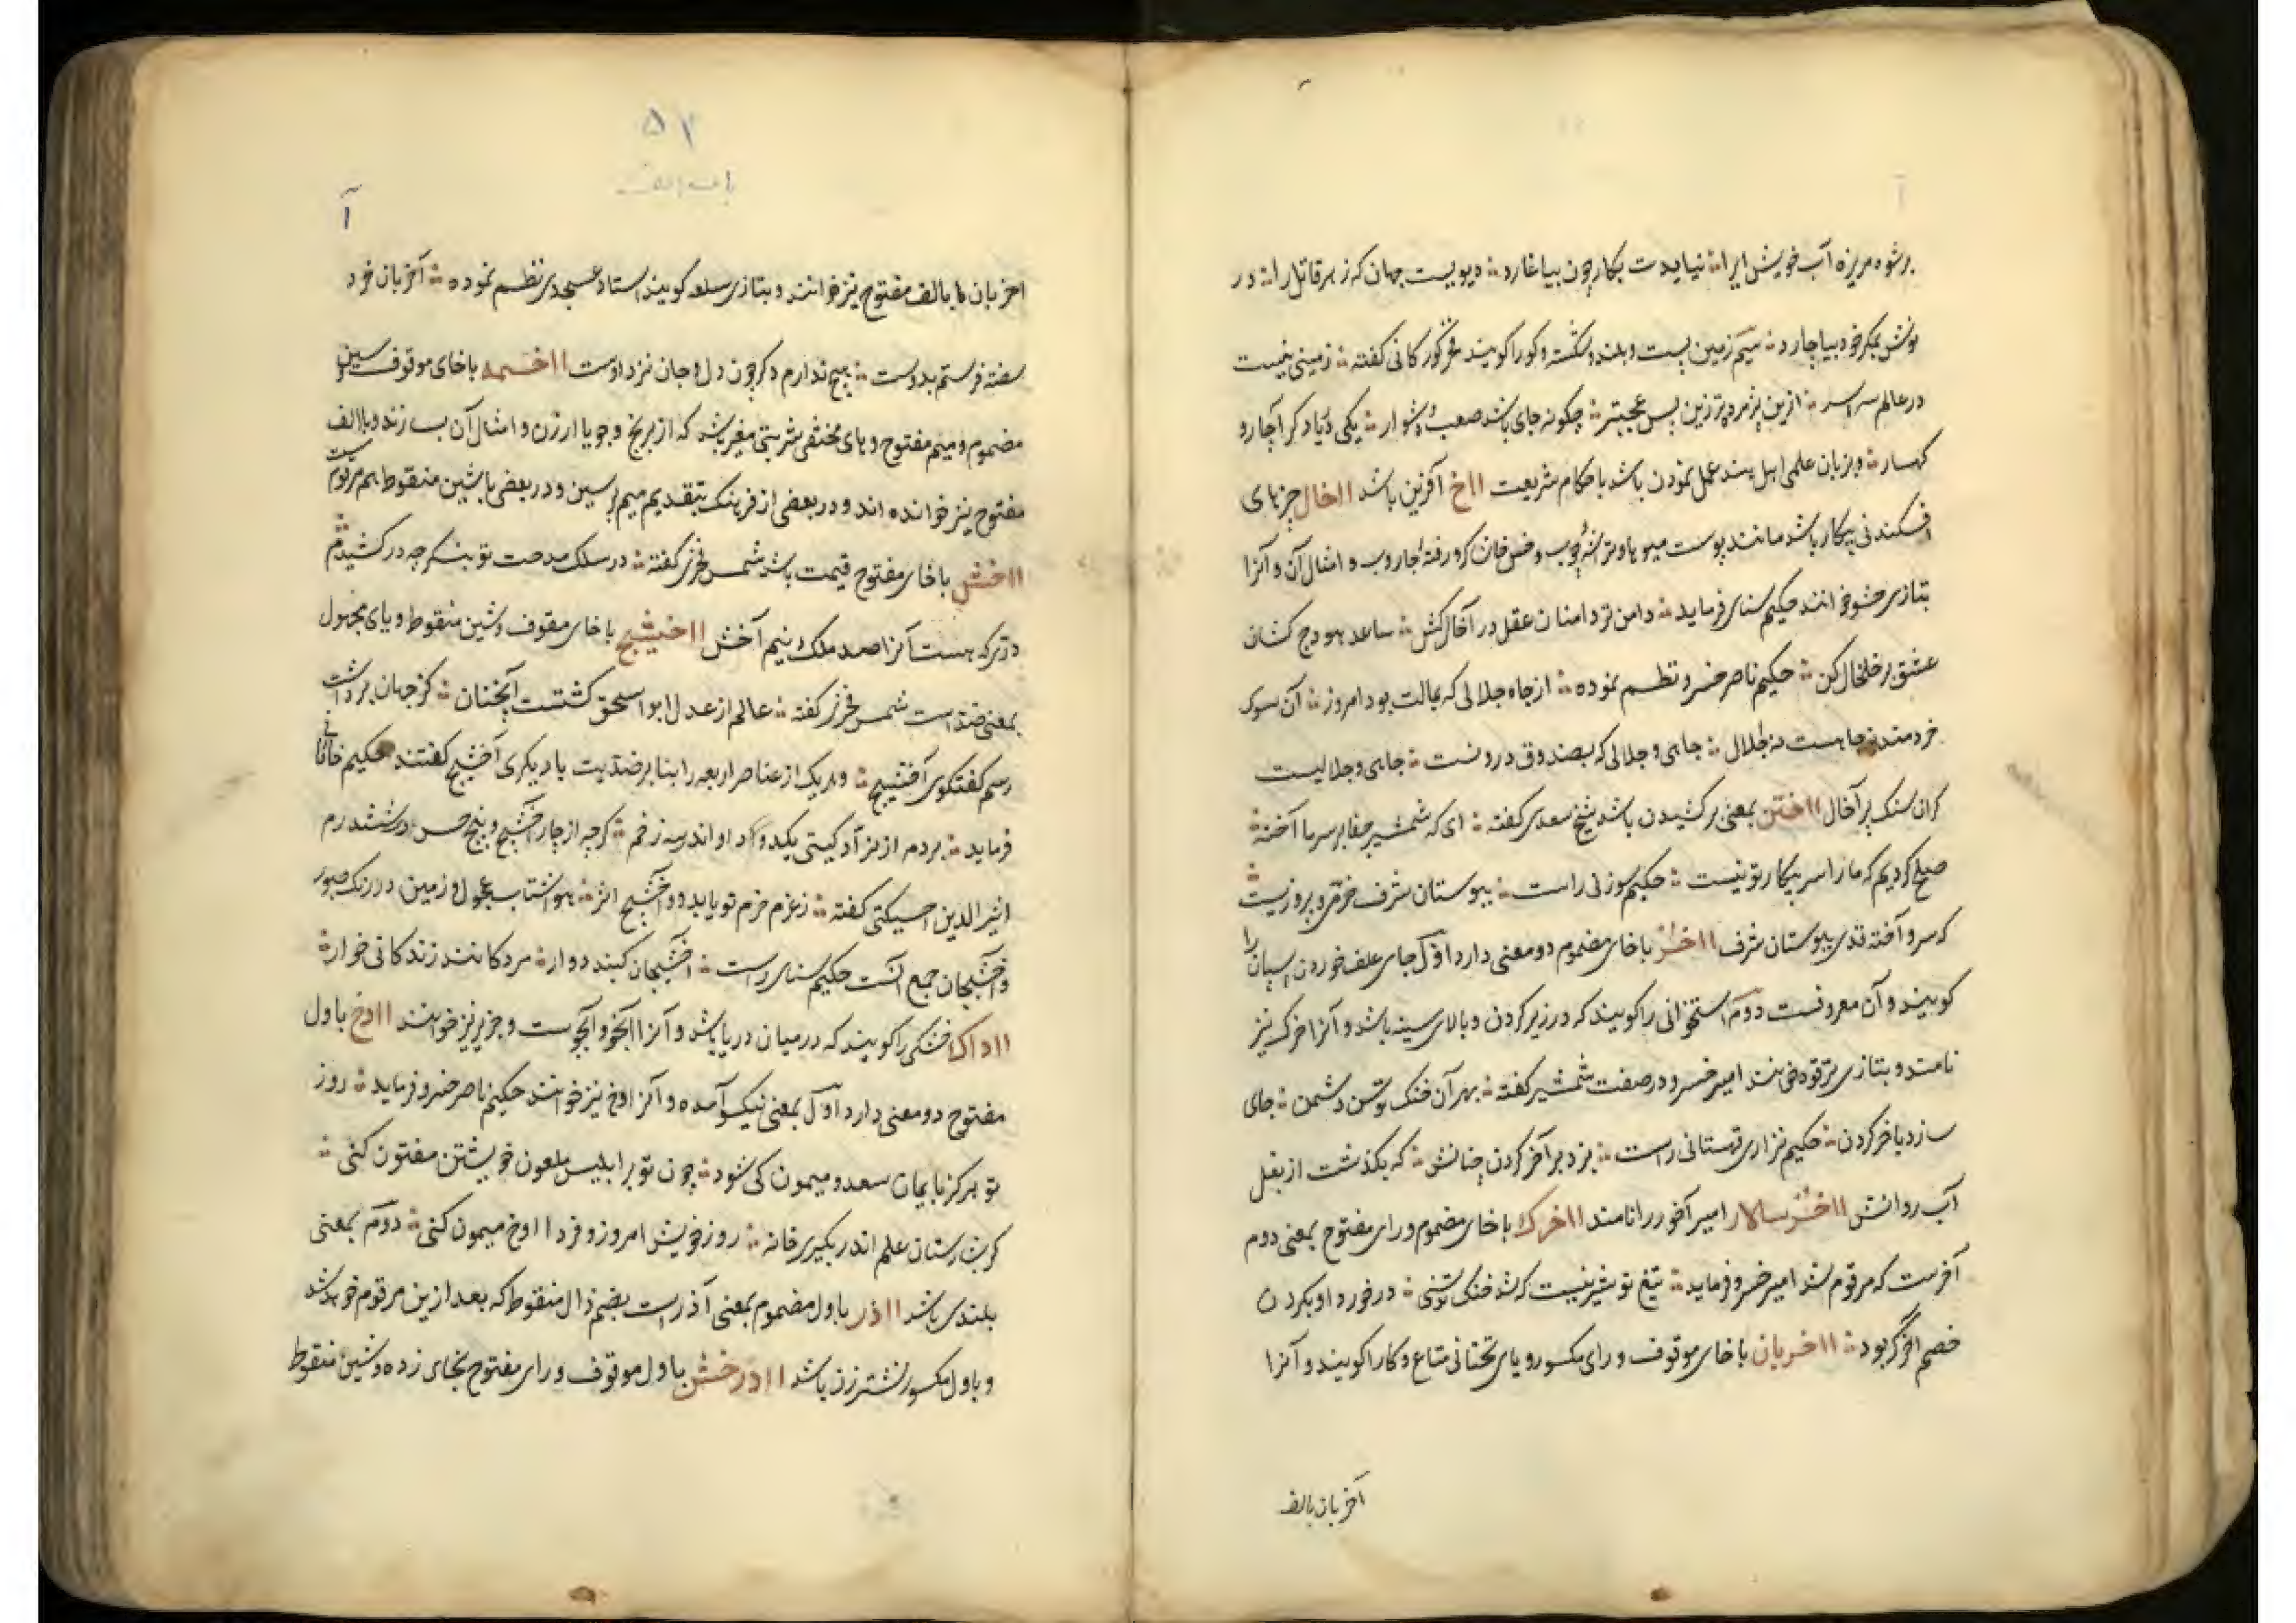 برشوه مریزه آب خویش ایرا ؞ نیایدت بکار چون بیاغارد ؞ دیویست جهان که زهر قاتل را ؞ در
نوش بمکر خود بیاچارد ؞ سیم زمین پست و بلند و شکسته و کور را کویند فخر کورکانی کفته ؞ زمینی نیست
در عالم سراسر ؞ ازین پژمرده تر زین بس عجبتر ؞ چکونه جای باشد صعب و دشوار ؞ یکی دریا دکر آچار و
کهسار ؞ و بزبان علمی اهل هند عمل نمودن باشد باحکام شریعت ااخ آفرین باشد ااخال چیزهای
افکندنی بیکار باشد مانند پوست میوها و تراشه چوب و خس و خاشاک و رفته جاروب و امثال آن و آنرا
بتازی حشو خوانند حکیم سنای فرماید ؞ دامن تر دامنان عقل در آخال کش ؞ ساعد هودج کشان
عشق پر خلخال کن ؞ حکیم ناصر خسرو نظم نموده ؞ از جاه جلالی که بمالت بود امروز ؞ آن سوی
خردمند نه جاهست نه جلال ؞ جاهی و جلالی که بصندوق درونست ؞ جاهی و جلالیست
کران سنک پر آخال ااختن بمعنی برکشیدن باشد شیخ سعدی کفته ؞ ای که شمشیر جفا بر سر ما آخته ؞
صلح کردیم که ما را سر پیکار تو نیست ؞ حکیم سوزنی راست ؞ ببوستان شرف خرمی و پروزیست ؞
که سرو آخته قدی ببوستان شرف ااخر با خای مضموم دو معنی دارد اول جای علف خوردن اسپان را
کویند و آن معروفست دوم استخوانی را کویند که در زیر کردن و بالای سینه باشد و آنرا آخرک نیز
نامند و بتازی ترقوه خوانند امیر خسرو در صفت شمشیر کفته ؞ بهر آن خنک توسن دشمن ؞ جای
سازد با خر کردن ؞ حکیم نزاری قهستانی راست ؞ بزد بر آخر کردن چنانش ؞ که بکذشت از بغل
آب روانش ااخرسالار امیر آخور را نامند ااخرک با خای مضموم و رای مفتوح بمعنی دوم
آخرست که مرقوم شد امیر خسرو فرماید ؞ تیغ تو شیریست که شد خنک توسنی ؞ در خورد او بکردن
خصم آخر کبود ؞ ااخریان با خای موقوف و رای مکسور و یای تحتانی متاع و کالا را کویند و آنرا
اخریان بالف
۵۲
باب الف
آ
اخریان با بالف مفتوح نیز خوانند و بتازی سلعه کویند استاد عسجدی نظم نموده ؞ آخریان خرد
سفته فرستم بدوست ؞ هیچ ندارم دکر چون دل و جان نزد اوست ااخسمه با خای موقوف و سین
مضموم و میم مفتوح و های مختفی شربتی مغیر باشد که از برنج و جو یا ارزن و امثال آن بسازند و بالف
مفتوح نیز خوانده اند و در بعضی از فرهنک بتقدیم میم بر سین و در بعضی با شین منقوط هم مرقومست
ااخش با خای مفتوح قیمت باشد شمس فخری کفته ؞ در سلک مدحت تو بنکر چه در کشیدم ؞
دری که هست آنرا صد ملک نیم آخش ااخشیج با خای موقوف و شین منقوط و یای مجهول
بمعنی ضد است شمس فخری کفته ؞ عالم از عدل ابو اسحق کشتست آنچنان ؞ کز جهان برداشت
رسم کفتکوی آخشیج ؞ و هر یک از عناصر اربعه را بنا بر ضدیت با دیکری آخشیج کفتند حکیم خاقانی
فرماید ؞ بر دم از نزاد کیتی یکدو داو اندر سه زخم ؞ کرچه از چار آخشیج و پنج حس در ششدرم
اثیرالدین اخسیکتی کفته ؞ ز عزم حزم تو یابد دو آخشیج اثر ؞ هوا شتاب عجول و زمین درنک صبور
و آخشیجان جمع آنست حکیم سنای راست ؞ آخشیجان کنبد دوار ؞ مردکانند زندکانی خوار ؞
ااداک خشکی را کویند که در میان دریا باشد و آنرا آبخو و آبخوست و جزیره نیز خوانند اادخ باول
مفتوح دو معنی دارد اول بمعنی نیک آمده و آنرا ادخ نیز خوانند حکیم ناصر خسرو فرماید ؞ روز
تو هرکز بایمان سعد و میمون کی شود ؞ چون تو بر ابلیس ملعون خویشتن مفتون کنی ؞
کر بشارستان علم اندر بکیری خانه ؞ روز خویش امروز و فردا اادخ میمون کنی ؞ دوم بمعنی
بلندی باشد ااذر باول مضموم بمعنی آذر است بضم ذال منقوط که بعد ازین مرقوم خواهد شد
و باول مکسور نشتر زن باشد اادرخش باول موقوف و رای مفتوح بخای زده و شین منقوط